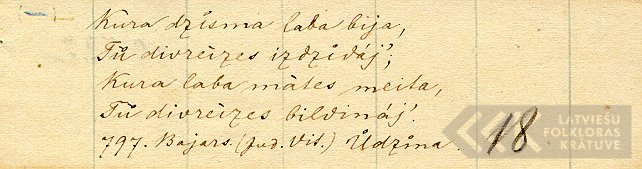 Kura dzîsma laba bija,
Tŭ divreizes izdzîdáj';
Kura laba mátes meita,
Tŭ divreizes bildináj'.
797. Bajars. (Jud. Vit.) Ŭdzîna. 18
LATVIEŠU
FOLKLORAS
KRATUVE